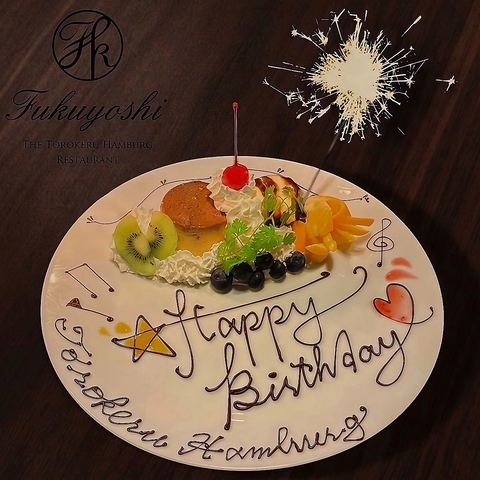 Fk
Fukuyoshi
THE TOROKERU HAMBURG
RESTAURANT
Happy
Birthday
Torokeru Hamburg